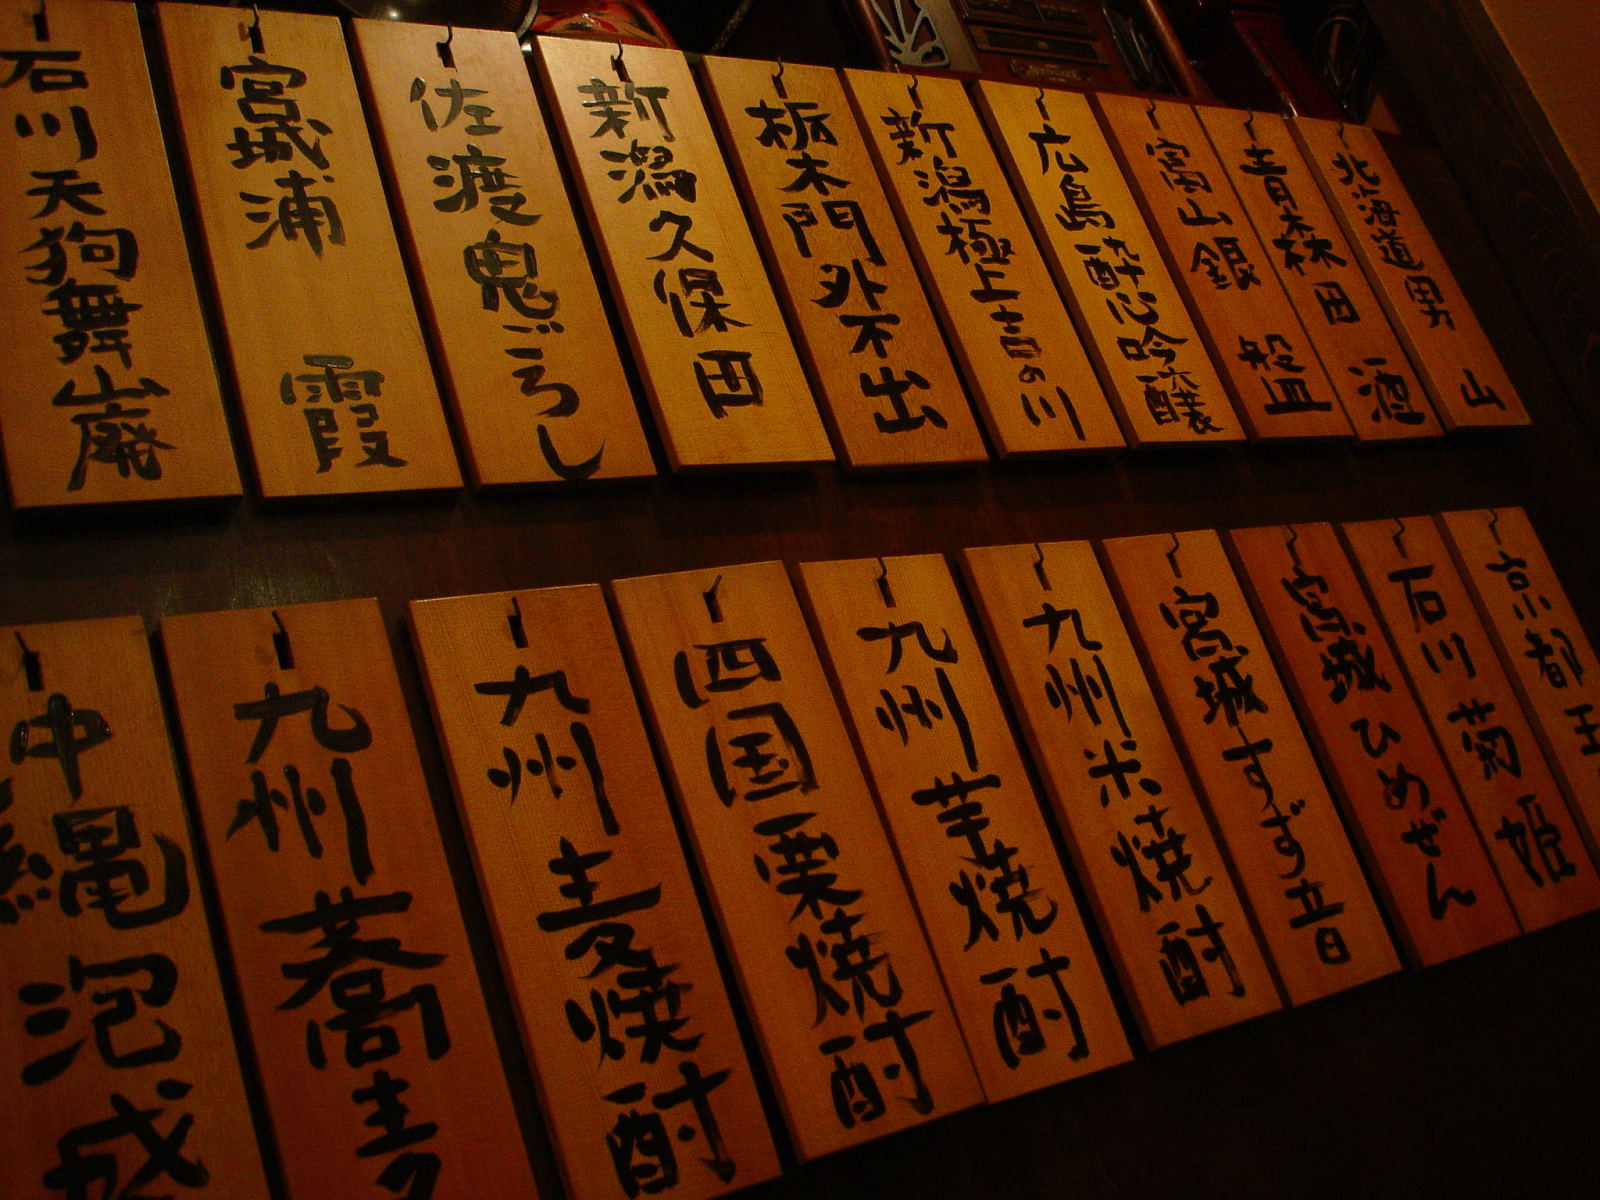 北海道男山
青森田酒
富山銀盤
広島酔心吟醸
新潟極上吉の川
栃木門外不出
新潟久保田
佐渡鬼ごろし
宮城浦 霞
石川天狗舞山廃
京都玉
石川菊姫
宮城ひめぜん
宮城すず音
九州米焼酎
九州芋焼酎
四国栗焼酎
九州麦焼酎
九州蕎麦
沖縄泡盛